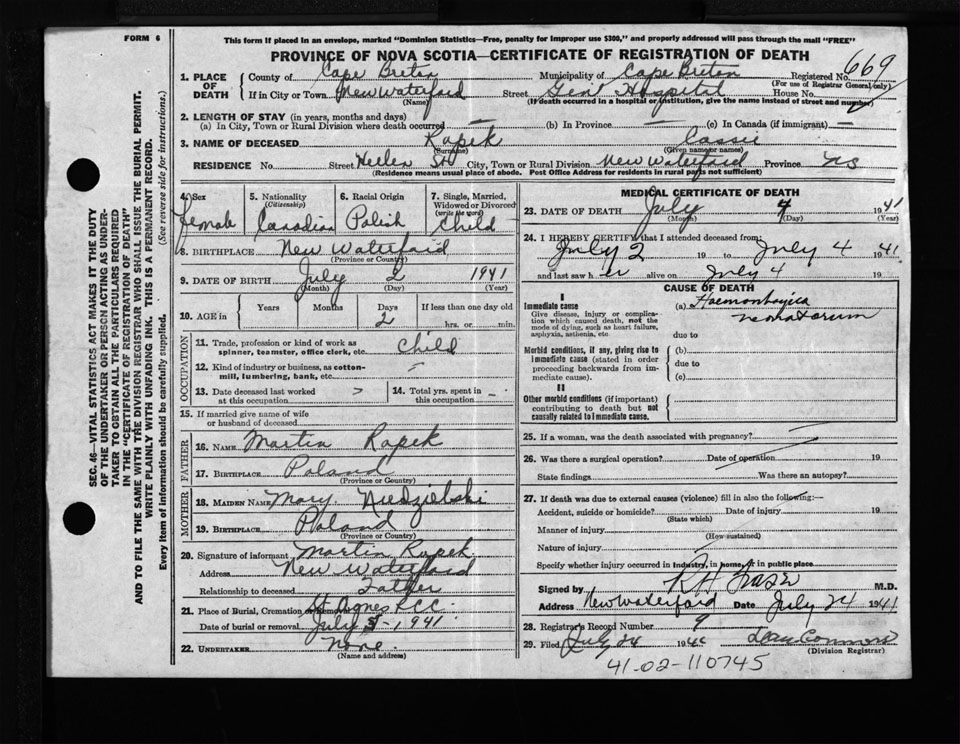 FORM 6
This form if placed in an envelope, marked "Dominion Statistics—Free, penalty for improper use $300," and properly addressed will pass through the mail "FREE"
PROVINCE OF NOVA SCOTIA—CERTIFICATE OF REGISTRATION OF DEATH
669
1. PLACE OF DEATH County of Cape Breton Municipality of Cape Breton Registered No.
(For use of Registrar General only)
If in City or Town New Waterford Street Genl Hospital House No.
(Name) (If death occurred in a hospital or institution, give the name instead of street and number)
2. LENGTH OF STAY (in years, months and days)
(a) In City, Town or Rural Division where death occurred — (b) In Province — (c) In Canada (if immigrant) —
3. NAME OF DECEASED Rapek Cassie
(Surname) (Given name or names)
RESIDENCE No. Street Hellen St City, Town or Rural Division New Waterford Province NS
(Residence means usual place of abode. Post Office Address for residents in rural parts not sufficient)
4. Sex Female
5. Nationality (Citizenship) Canadian
6. Racial Origin Polish
7. Single, Married, Widowed or Divorced (write the word) Child
8. BIRTHPLACE New Waterford
(Province or Country)
9. DATE OF BIRTH July 2 1941
(Month) (Day) (Year)
10. AGE in Years Months Days 2 If less than one day old
hrs. or min.
OCCUPATION
11. Trade, profession or kind of work as spinner, teamster, office clerk, etc. Child
12. Kind of industry or business, as cotton-mill, lumbering, bank, etc. -
13. Date deceased last worked at this occupation
14. Total yrs. spent in this occupation -
15. If married give name of wife or husband of deceased
FATHER
16. NAME Martin Rapek
17. BIRTHPLACE Poland
(Province or Country)
MOTHER
18. MAIDEN NAME Mary Niedzielski
19. BIRTHPLACE Poland
(Province or Country)
20. Signature of informant Martin Rapek
Address New Waterford
Relationship to deceased Father
21. Place of Burial, Cremation or Removal St Agnes RCC.
Date of burial or removal July 5-1941
22. UNDERTAKER None.
(Name and address)
MEDICAL CERTIFICATE OF DEATH
23. DATE OF DEATH July 4 1941
(Month) (Day) (Year)
24. I HEREBY CERTIFY that I attended deceased from:
July 2 19 to July 4 1941
and last saw h er alive on July 4 19
CAUSE OF DEATH
I
Immediate cause
Give disease, injury or complication which caused death, not the mode of dying, such as heart failure, asphyxia, asthenia, etc.
(a) Haemorrhagica neonatorum
due to
Morbid conditions, if any, giving rise to immediate cause (stated in order proceeding backwards from immediate cause).
(b)
due to
(c)
II
Other morbid conditions (if important) contributing to death but not causally related to immediate cause.
25. If a woman, was the death associated with pregnancy?
26. Was there a surgical operation? Date of operation 19
State findings Was there an autopsy?
27. If death was due to external causes (violence) fill in also the following:—
Accident, suicide or homicide? Date of injury 19
(State which)
Manner of injury
(How sustained)
Nature of injury
Specify whether injury occurred in industry, in home, or in public place
Signed by R H Fraser M.D.
Address New Waterford Date July 24 1941
28. Registrar's Record Number 9
29. Filed July 24 19
(Division Registrar)
41-02-110745
SEC. 46—VITAL STATISTICS ACT MAKES IT THE DUTY
OF THE UNDERTAKER OR PERSON ACTING AS UNDER-
TAKER TO OBTAIN ALL THE PARTICULARS REQUIRED
IN THE "CERTIFICATE OF REGISTRATION OF DEATH"
AND TO FILE THE SAME WITH THE DIVISION REGISTRAR WHO SHALL ISSUE THE BURIAL PERMIT.
WRITE PLAINLY WITH UNFADING INK. THIS IS A PERMANENT RECORD.
Every item of information should be carefully supplied. (See reverse side for instructions.)